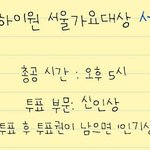 하이원 서울가요대상
총공 시간 : 오후 5시
투표 부문: 신인상
투표 후 투표권이 남으면 !인기상